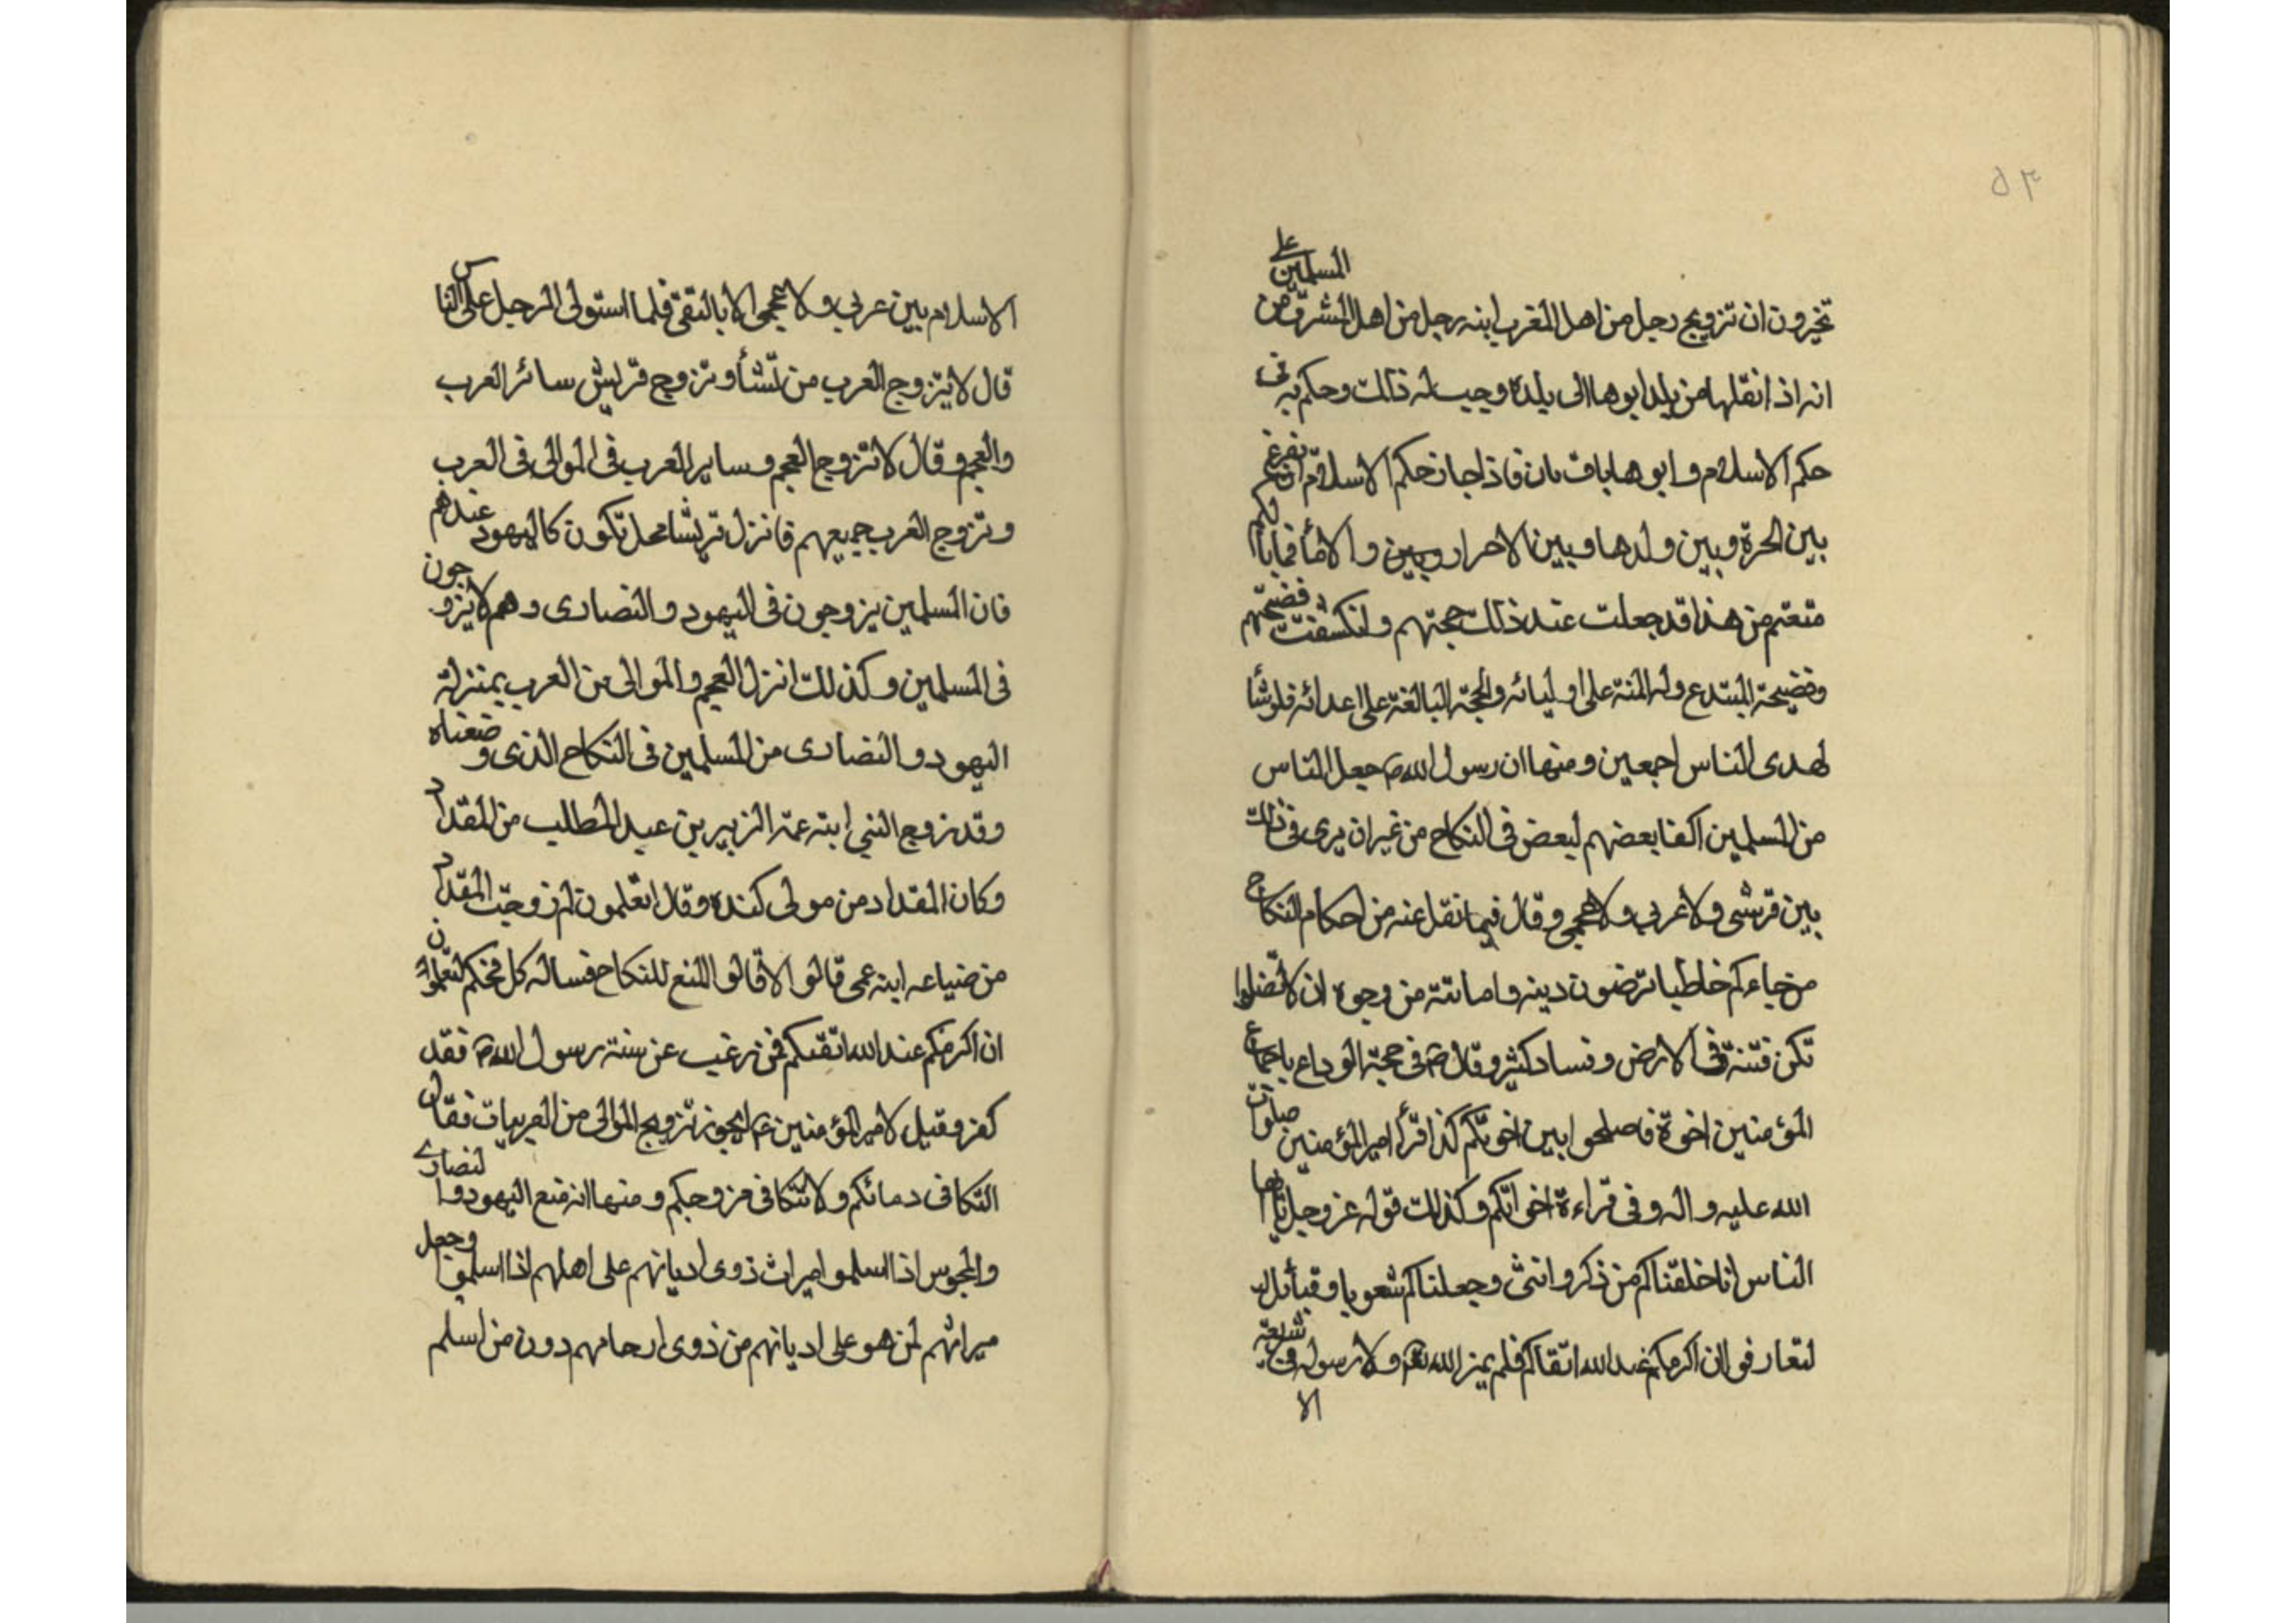 ٥٣
تخيرون ان تزويج رجل من اهل المغرب ابنه رجل من اهل المشرق من المسلمين على
انه اذ انقلها من بلد ابوها الى بلده وجب له ذالك وحكم به فى
حكم الاسلام و ابوها باق بان فاذا جاز حكم الاسلام ان نفرغ
بين الحرة و بين ولدها و بين الاحرار وبين و الامأ فما بالكم
متعتم من هذا قد جعلت عند ذالك حجتهم و انكشفت فضيحتهم
وفضيحة المبتدع وله المنة على اوليائه والحجة البالغة على اعدائه فلو شأ
لهدى الناس اجمعين و منها ان رسول الله ص جعل الناس
من المسلمين اكفا بعضهم لبعض فى النكاح من غير ان يرى فى ذلك
بين قرشى ولا عربي ولا عجمي و قال فيما نقل عنه من احكام النكاح
من جاءكم خاطبا ترضون دينه و امانته من وجوه ان لا تفعلوا
تكن فتنة فى الارض و فساد كثير و قال ص فى حجة الوداع باجماع
المؤمنين اخوة فاصلحوا بين اخوتكم كذا قرأ امير المؤمنين صلوات
الله عليه و اله و فى قراءة اخوانكم و كذلك قوله عز وجل يا ايها
الناس انا خلقناكم من ذكر و انثى وجعلناكم شعوبا و قبائل
لتعارفوا ان اكرمكم عند الله اتقاكم فلم يميز الله و لا رسوله فى شريعة
الا
الاسلام بين عربي و لا عجمى الا بالتقى فلما استولى الرجل على الناس
قال لا يتزوج العرب من تشأ و تزوج قريش سائر العرب
والعجم و قال لا تزوج العجم و ساير العرب فى الموالى فى العرب
و تزوج العرب جميعهم فانزل قريشا محل تكون كاليهود عندهم
فان المسلمين يزوجون فى اليهود و النصارى و هم لا يزوجون
فى المسلمين و كذلك انزل العجم و الموالى من العرب بمنزلة
اليهود و النصارى من المسلمين فى النكاح الذى وضعناه
و قد زوج النبي ابنة عمه الزبير بن عبد المطلب من المقداد
و كان المقداد من مولى كنده و قال اتعلمون لم زوجت المقداد
من ضباعه ابنة عمى قالوا لا قالوا النع للنكاح فساله كل فحكم لتعلموا
ان اكرمكم عند الله اتقيكم فمن رغب عن سنة رسول الله ص فقد
كفر و قيل لامير المؤمنين ع ايجوز تزويج الموالى من العربيات فقال
التكافى دمائكم و لا تتكافى فروجكم و منها انه منع اليهود و النصارى
و المجوس اذا اسلموا ميراث ذوى اديانهم على اهلهم اذا اسلموا وجعل
ميراثهم لمن هو على اديانهم من ذوى ارحامهم دون من اسلم